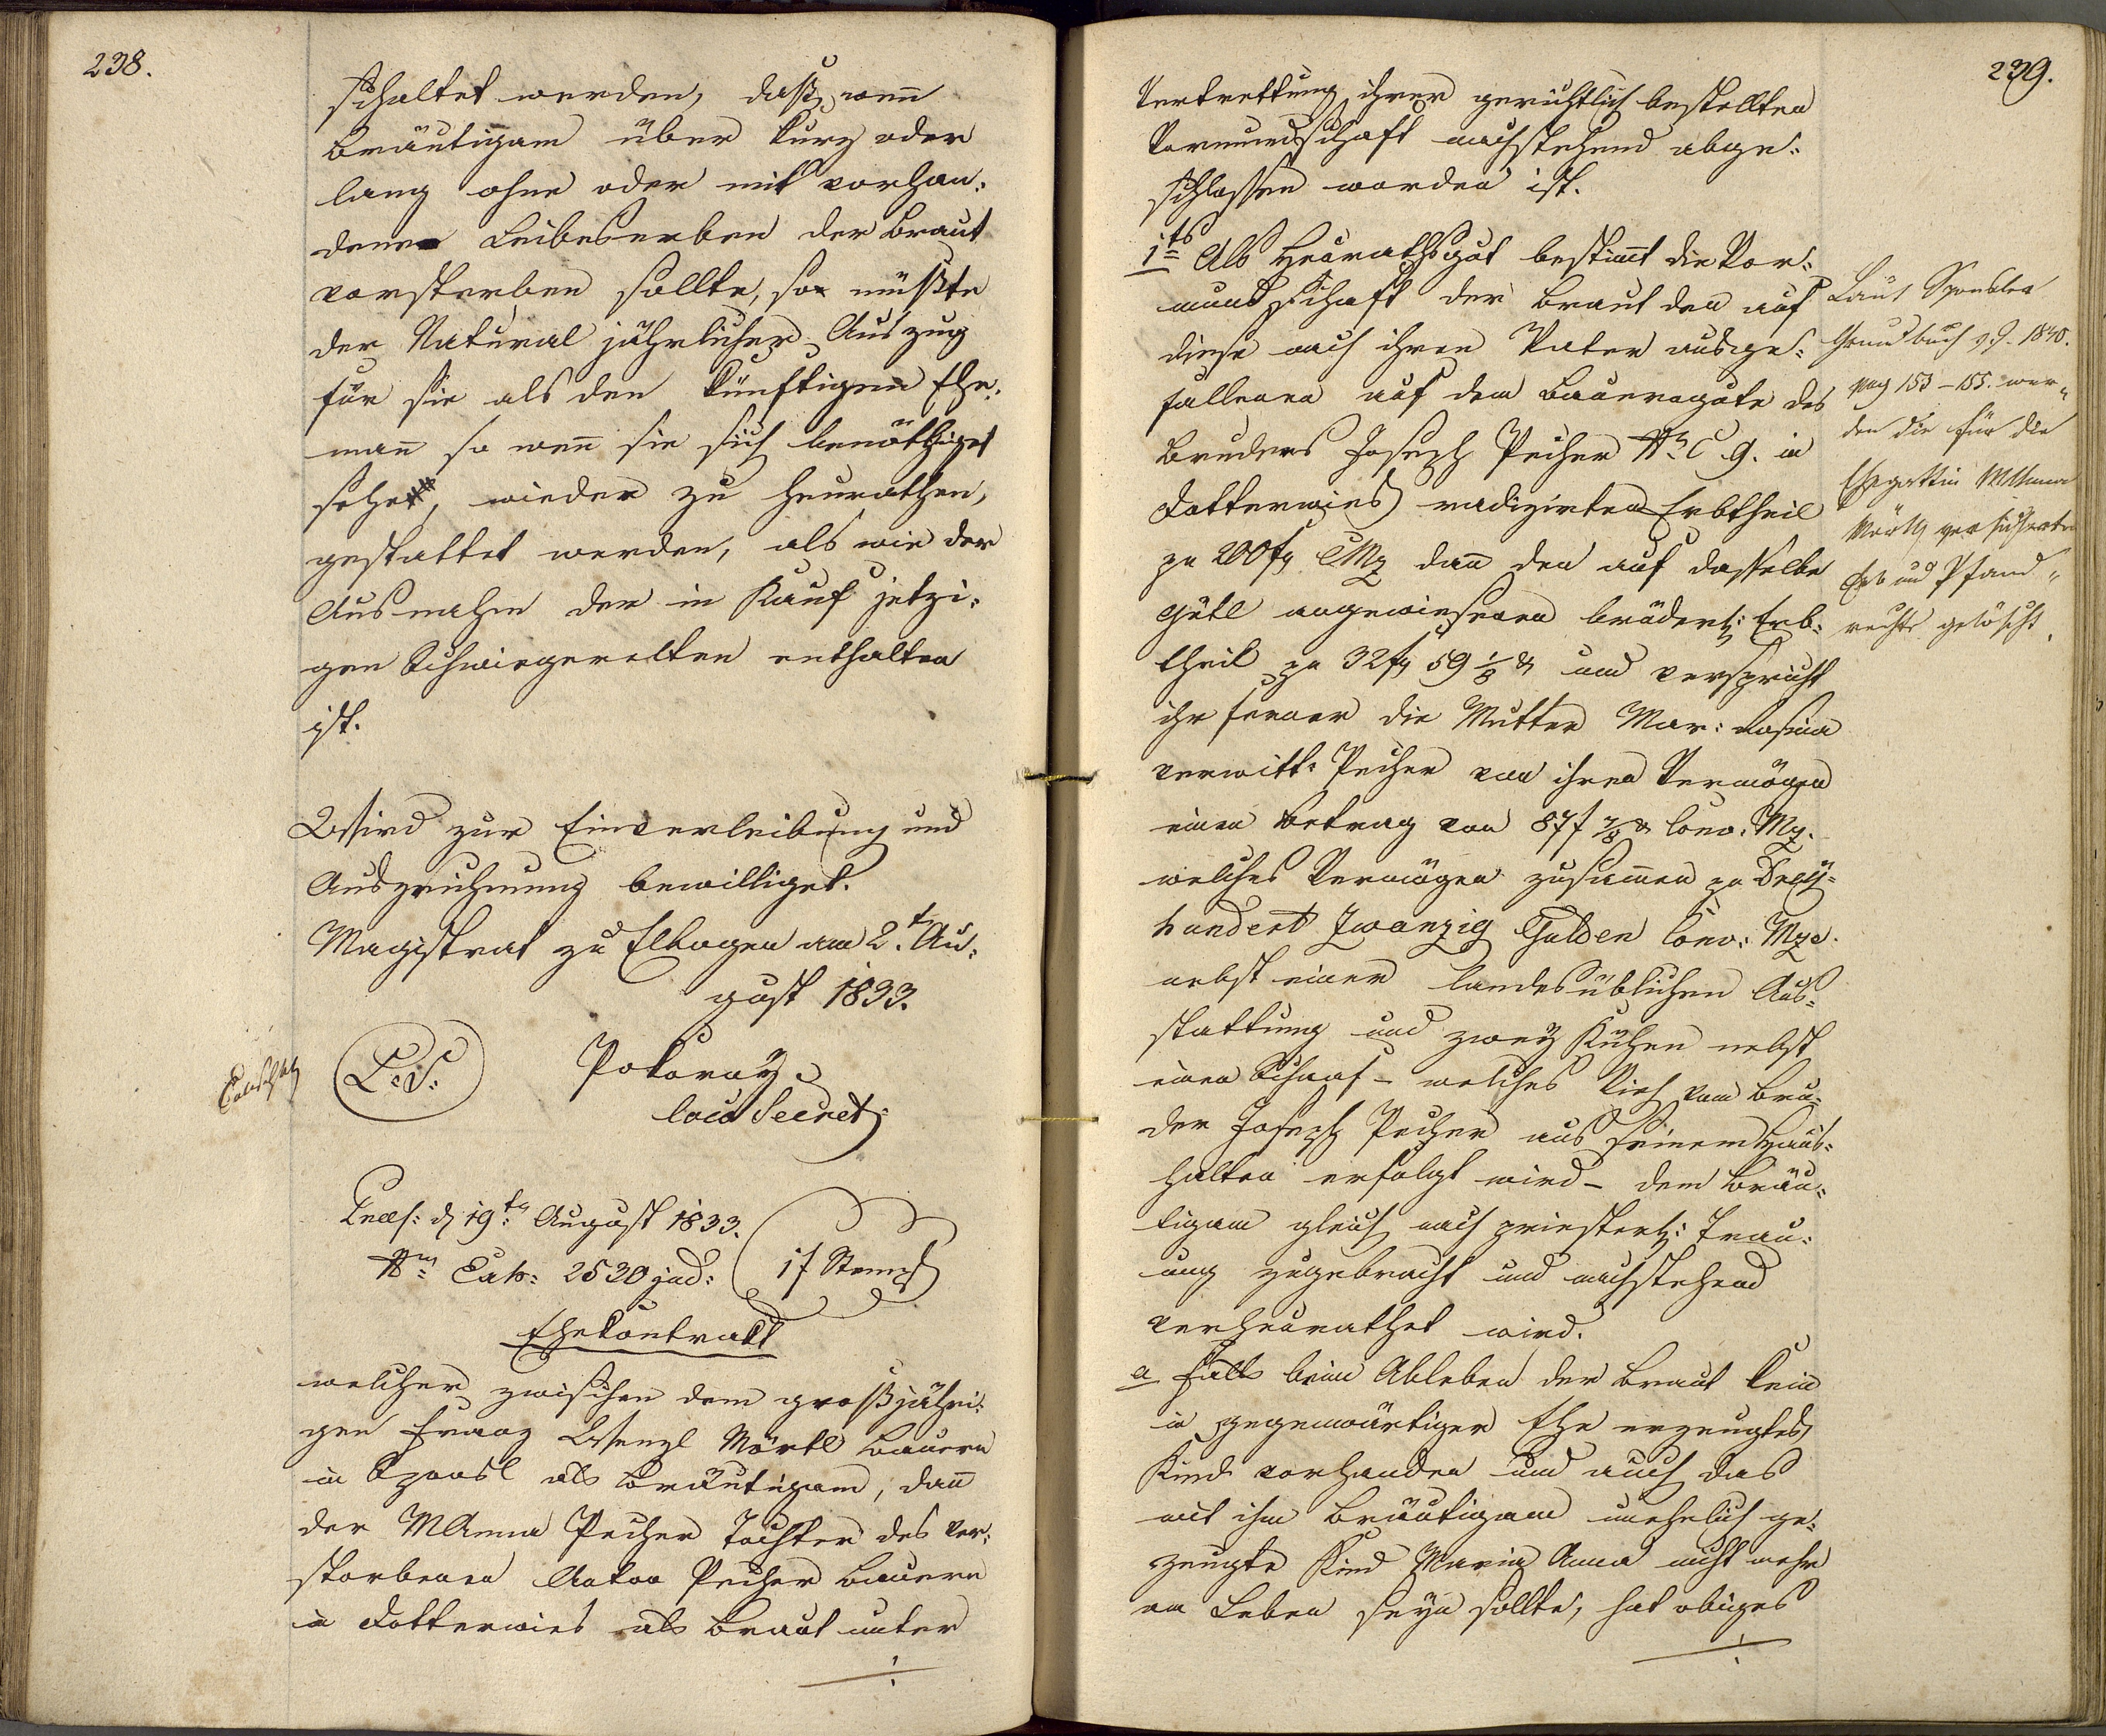 238.
schaltet werden, daß, wenn
Bräutigam über kurz oder
lang ohne oder mit vorhan:
denen Leibeserben der Braut
vorsterben sollte, so müßte
der Natural jährlicher Auszug
für sie als den künftigen Ehe:
mañ so weñ sie sich benöthiget
sehe, wieder zu heurathen,
gestattet werden, als wie der
Ausnahm der in Kauf jetzi:
gen Schwiegereltern enthalten
ist.
Wird zur Einverleibung und
Auszeichnung bewilliget.
Magistrat zu Elbogen am 2.t Au:
gust 1833.
L: S:
Pokorny
loco Secret:
Præs: d 19tn August 1833.
Nro Exh: 2530 jud:
1f Stempl
Ehekontrakt
welcher zwischen dem großjähri:
gen Franz Wenzl Mörtl Bauern
in Sponsl als Bräutigam, dañ
der MAnna Pecher Tochter des ver:
storbenen Anton Pecher Bauern
in Dotterwies als Braut unter
239.
Vertrettung ihrer gerichtlich bestellten
Vormundschaft nachstehend abge:
schlossen worden ist.
1ts Als Heurathsgut bestim̃t die Vor:
mundschaft der Braut den auf
diese nach ihren Vater ausge:
fallenen auf dem Bauerngute des
Bruders Joseph Pecher Nr C 9. in
Dotterwies radizirten Erbtheil
zu 200f CMz dañ den auf dasselbe
Gütl angewiesenen brüderl: Erb:
theil zu 32f 59 1/8 x und verspricht
ihr ferner die Mutter Mar: Rosina
verwitt: Pecher von ihren Vermögen
einen Betrag von 87f 7/8 x Conv: Mz.
welches Vermögen zusam̃en zu Drey:
hundert Zwanzig Gulden Conv: Mze.
nebst einer landesüblichen Aus:
stattung und zwey Kühen nebst
einen Schaaf – welches Vieh vom Bru:
der Joseph Pecher aus seinem Haus:
halten erfolgt wird – dem Bräu:
tigam gleich nach priesterl: Trau:
ung zugebracht und nachstehend
verheurathet wird.
a Falls beim Ableben der Braut kein
in gegenwärtiger Ehe erzeugtes
Kind vorhanden und auch das
mit ihm Bräutigam unehelich ge:
zeugte Kind Maria Anna nicht mehr
am Leben seyn sollte, hat obiges
Laut Sponsler
Grundbuch v. J. 1840.
pag 153 – 155. wer„
den die für die
Ehegattin MAnna
Mörtl versicherte
Erb und Pfand„
rechte gelöscht.